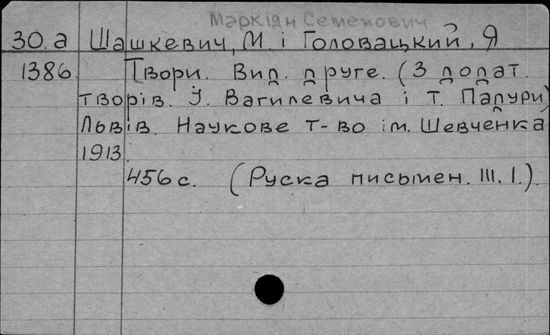 Маркіян Семенович
30.а Шашкевич, М. і Головацкий, Я
1386. Твори. Вид. друге. (З додат.
творів. І. Вагилевича і Т. Падури)
Львів. Наукове т-во ім. Шевченка
1913.
456 с. (Руска письмен. III. 1.)